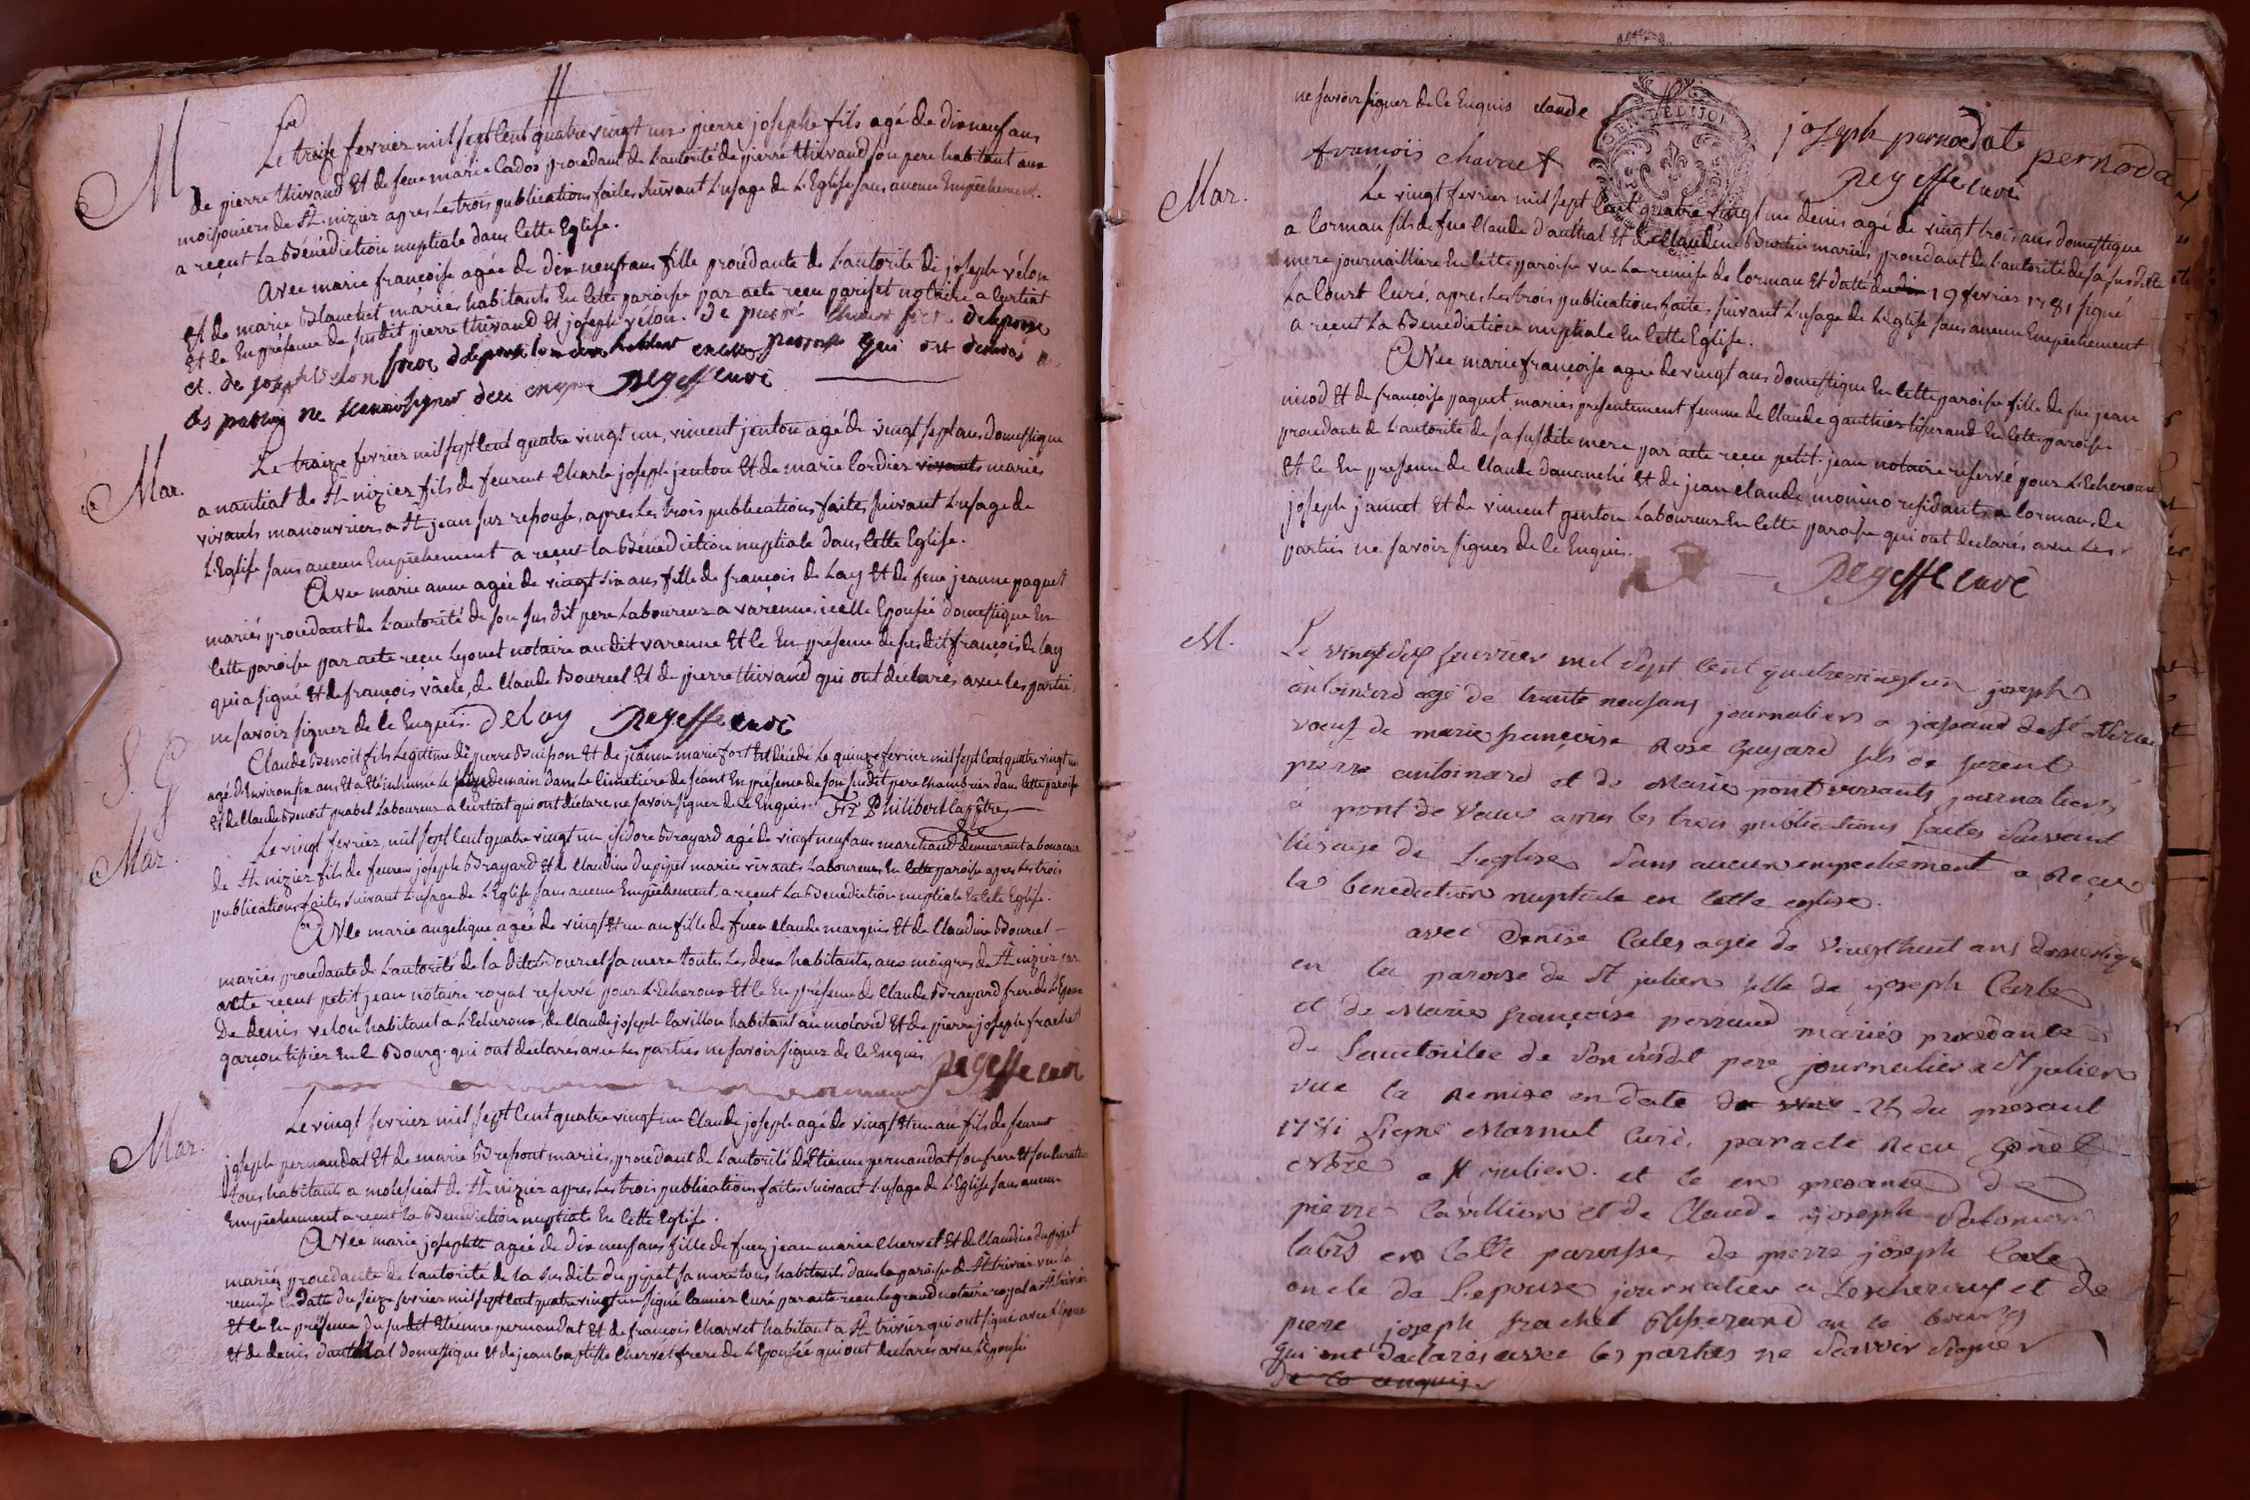 M
Le treise fevrier mil sept Cent quatre vingt un pierre joseph fils agé de dix neuf ans
de pierre thivand Et de feue marie Cados procedant de L'autorité de pierre thivaud son pere habitant aux
moissoniers de St. nizier apres Les trois publications faites suivant L'usage de L'Eglise sans aucun Empêchement.
a reçeut La Bénédiction nuptiale dans Cette Eglise.
Avec marie francoise agée de dix neuf ans fille procedante de L'autorité de joseph vélon
Et de marie Blanchet mariés habitants En Cette paroisse par acte reçu pariset notaire a Curtiat
Et Ce En présence du susdit pierre thivand Et joseph velon. de pierre
et. de joseph velon frere de l'epouse habitant en cette paroisse qui ont declarés a.
les parties ne scavoir signer dece enquis Reyeffe curé
Mar.
Le traize fevrier mil sept Cent quatre vingt un, vincent jenton agé de vingt sept ans domestique
a nantiat de St. nizier fils de feurent Charle joseph jenton Et de marie Cordier vivants mariés
vivants manouvriers a St. jean sur resouse, apres Les trois publications faites suivant L'usage de
L'Eglise sans aucun Empêchement a reçeut la Bénédiction nuptiale dans Cette Eglise.
Avec marie anne agée de vingt six ans fille de francois de Lay Et de feue jeanne paquet
mariés procedant de L'autorité de son susdit pere Laboureur a varenne, icelle Epousée domestique En
Cette paroisse par acte reçu Lyonet notaire au dit varenne Et Ce En présence de susdit françois de Lay
qui a signé Et de françois vâche, de Claude Bourcel Et de pierre thivand qui ont declarés avec les parties
ne savoir signer de Ce Enquis. delay Reyeffe curé
S. G
Claude Benoit fils Legitime de pierre Buisson Et de jeanne marie fort Est décédé Le quinze fevrier mil sept Cent quatre vingt un
agé d'Environ six ans Et a Eté inhumé le surlendemain dans Le Cimetiere de Céant En présence de son susdit pere Chambrier dans Cette paroisse
Et de Claude Benoit prabel Laboureur a Curtiat qui ont déclaré ne savoir signer de Ce Enquis. Frz Philibert laprêtre
Mar
Le vingt fevrier, mil sept Cent quatre vingt un, isidore Brayard agé de vingt neuf ans marchand demeurant a bonacour
de St. nizier fils de feurent joseph Brayard Et de Claudine Dupipet mariés vivants Laboureurs En Cette paroisse apres Les trois
publications faites suivant L'usage de L'Eglise sans aucun Empêchement, a reçeut La Benediction nuptiale En Cette Eglise.
Avec marie angelique agée de vingt Et un an fille de fuen Claude marquis Et de Claudine Bourcel
mariés procedante de L'autorité de la dite Bourcel sa mere toutes Les deux habitantes aux maigres de St. nizier par
acte reçeut petit jean notaire royal reservé pour L'Echeroux Et Ce En présence de Claude Brayard frere de L'Epoux
De denis velon habitant a L'Echeroux, de Claude joseph Cavillon habitant au molard Et de pierre joseph frachet
garçon tissier En le Bourg. qui ont déclarés avec Les parties ne savoir signer de Ce Enquis Reyeffe curé
Mar.
Le vingt fevrier mil sept Cent quatre vingt un Claude joseph agé de vingt Et un an fils de feurent
joseph pernaudat Et de marie Bressont mariés, procedant de L'autorité d'Etienne pernaudat son frere Et son Curateur
tous habitants a molisiat de St. nizier apres Les trois publications faites suivant L'usage de L'Eglise sans aucun
Empêchement a reçeut la Benediction nuptiale En Cette Eglise.
Avec marie josephte agée de dix neuf ans fille de fuen jean marie Chervet Et de Claudine dupipet
mariés, procedante de L'autorité de la susdite dupipet sa mere tous habitants dans la paroisse de St. trivier vu la
remise En datte du seize fevrier mil sept Cent quatre vingt un signé Curé par acte reçu Legrand notaire royal a St. trivier
Et Ce En présence du susdit Etienne pernaudat Et de francois Charvet habitant à St. trivier qui ont signé avec L'Epoux
Et de denis dauthal domestique Et de jean baptiste Chervet frere de L'Epousée qui ont declarés avec L'Epousée
ne savoir signer de Ce Enquis claude joseph pernodat pernodat
francois charvet Reyeffe curé
Mar.
Le vingt fevrier mil sept Cent quatre vingt un denis agé de vingt trois ans domestique
a Cormau fils de fue Claude d'authal Et de Claudine Bourdin mariés, procedant de L'autorité de sa susditte
mere journailliere En Cette paroisse vu La remise de Cormau Et dattée du 19 fevrier 1781 signé
La Court Curé, apres Les trois publications faites suivant L'usage de L'Eglise sans aucun Empêchement
a reçeut La Bénédiction nuptiale En Cette Eglise.
Avec marie francoise agée de vingt ans domestique En Cette paroisse fille de fue jean
nicod Et de françoise paquet mariés presentement femme de Claude gauthier tisserand En Cette paroisse
procedante de L'autorité de sa susdite mere par acte reçu petit-jean notaire reservé pour L'Echeroux
Et Ce En présence de Claude donanché Et de jean claude monino residants a Cormau, de
joseph jannet Et de vincent genton Laboureur En Cette paroisse qui ont declarés avec Les
parties ne savoir signer de Ce Enquis. Reyeffe curé
M.
Le vingt six fevrier mil Sept Cent quatrevingt un joseph
antoinard agé de trante neuf ans journalier a japaud de St Nizier
voeuf de marie françoise Rose Guyard fils de furent
pierre antoinard et de Marie pont vivants journaliers
a pont de Vaux apres les trois publications faites Suivant
L'usage de L'eglise Sans aucun empechement a Reçu
la benediction nuptiale en cette eglise.
avec Denise Cales agée de Vingthuit ans domestique
en la paroisse de St julien fille de joseph Carle
et de Marie françoise perraud mariés procedante
de L'autoritée de Son susdit pere journalier a St julien
vue la Remise en date du 25 du presant
1781 Signé Marmet Curé. par acte Recu
a St julien. et ce en presance de
pierre Cavillion et de Claude joseph Salomon
labrs en cette paroisse, de pierre joseph Cale
oncle de L'epouse journalier a Lescheroux et de
pierre joseph frachet tisserand en le bourg
qui ont declarés avec les parties ne Scavoir Signer
de ce enquis